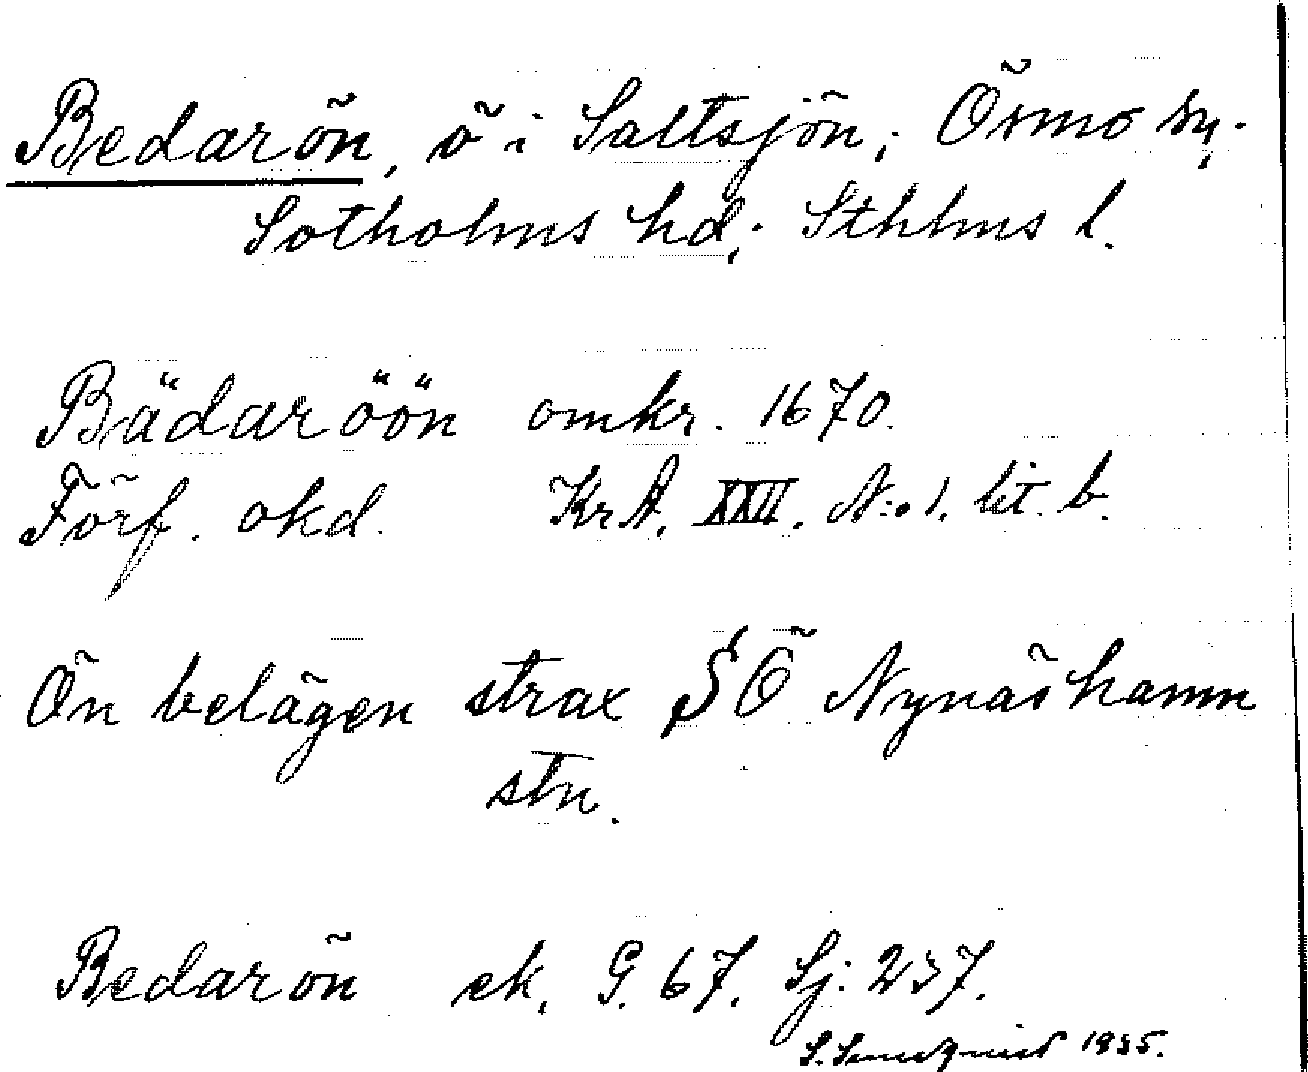 Bedarön, ö i Saltsjön; Ösmo sn;
Sotholms hd; Sthlms l.
Bädaröön omkr. 1670.
Förf. okd. KrA. XXII. N:o 1. lit. b.
Ön belägen strax SÖ Nynäshamn
stn.
Bedarön ek. G. 67. Sj: 237.
1935.